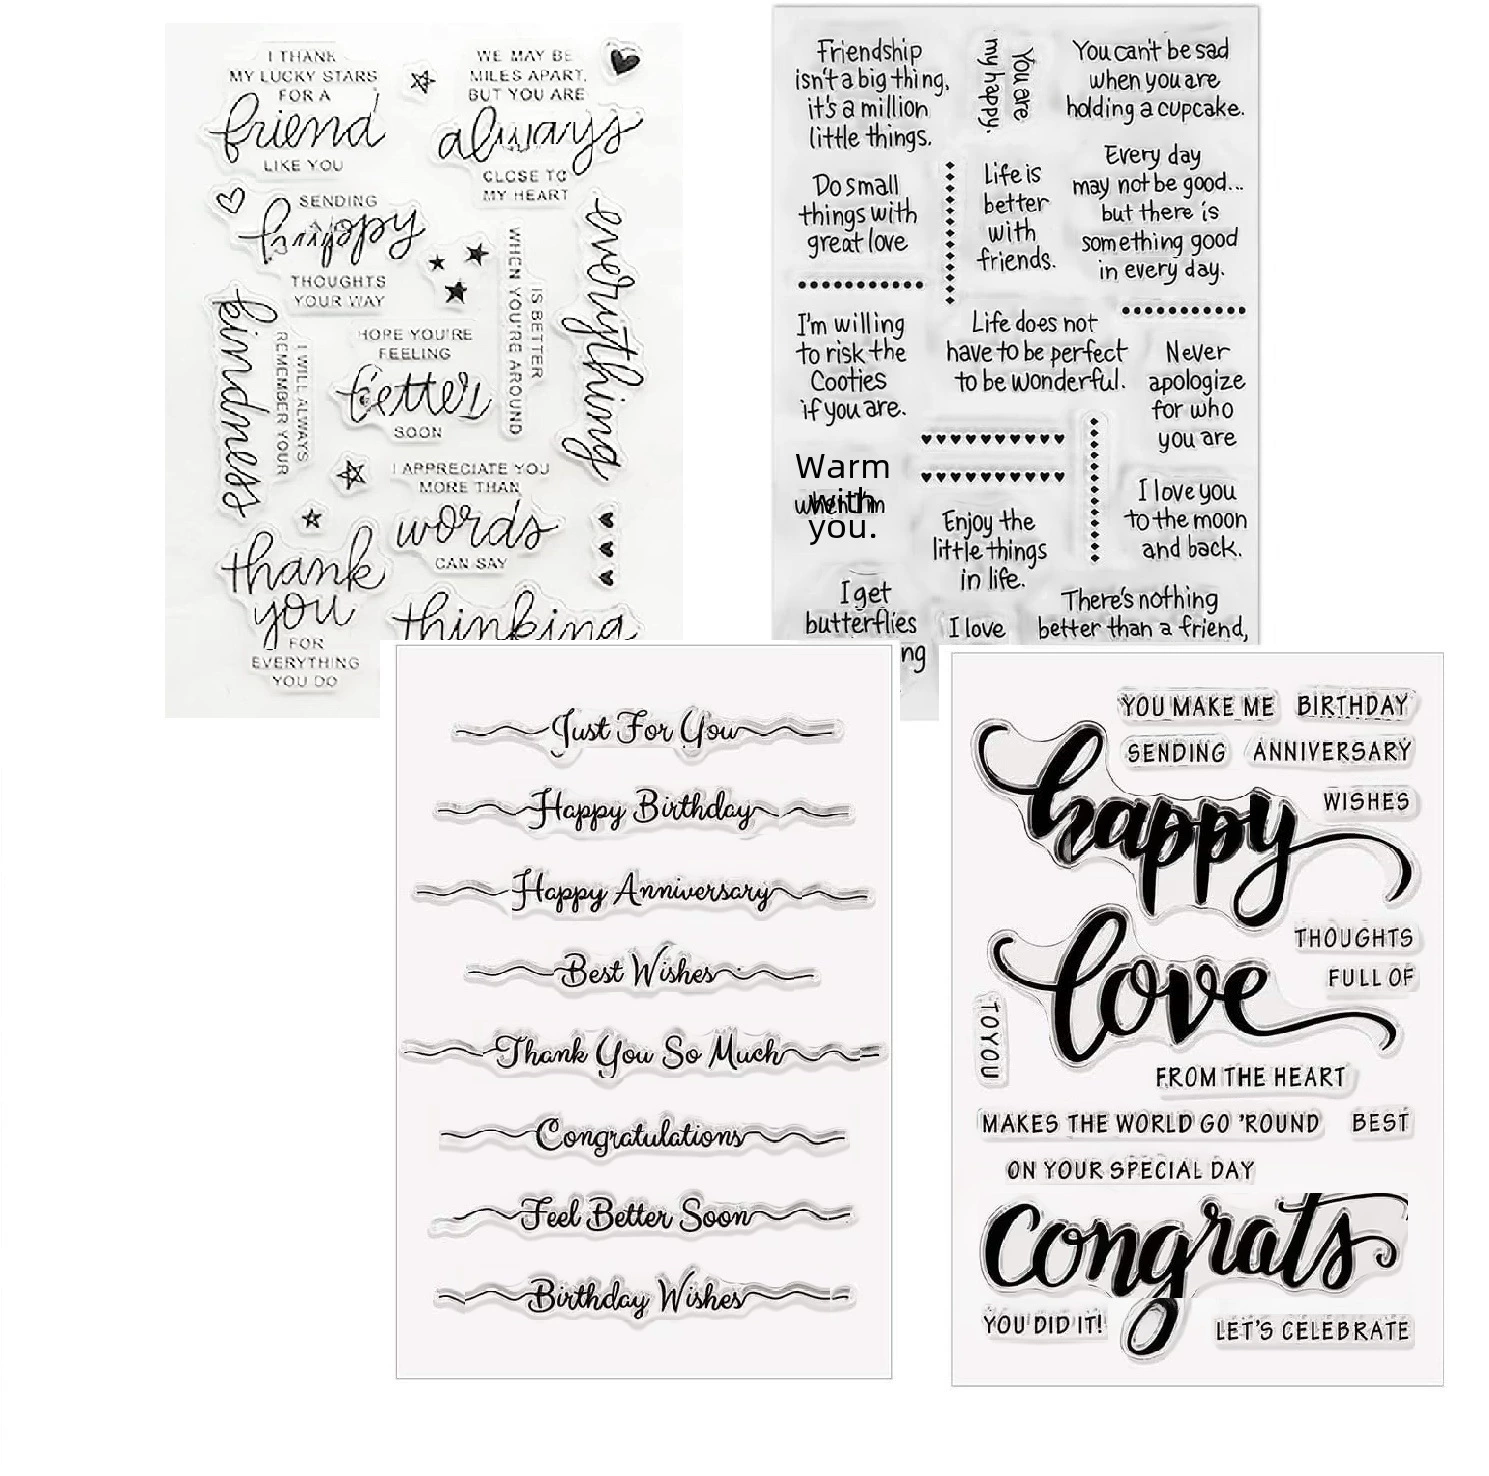 I THANK
MY LUCKY STARS
FOR A
friend
LIKE YOU
WE MAY BE
MILES APART,
BUT YOU ARE
always
CLOSE TO
MY HEART
SENDING
happy
THOUGHTS
YOUR WAY
everything
IS BETTER
WHEN YOU'RE AROUND
kindness
I WILL ALWAYS
REMEMBER YOUR
HOPE YOU'RE
FEELING
better
SOON
I APPRECIATE YOU
MORE THAN
words
CAN SAY
thank
you
FOR
EVERYTHING
YOU DO
thinking
Friendship
isn't a big thing,
it's a million
little things.
You are
my happy.
You can't be sad
when you are
holding a cupcake.
Do small
things with
great love
Life is
better
with
friends.
Every day
may not be good...
but there is
something good
in every day.
I'm willing
to risk the
Cooties
if you are.
Life does not
have to be perfect
to be wonderful.
Never
apologize
for who
you are
Warm
with
you.
Enjoy the
little things
in life.
I love you
to the moon
and back.
I get
butterflies
I love
There's nothing
better than a friend,
Just For You
Happy Birthday
Happy Anniversary
Best Wishes
Thank You So Much
Congratulations
Feel Better Soon
Birthday Wishes
YOU MAKE ME
BIRTHDAY
SENDING
ANNIVERSARY
WISHES
happy
THOUGHTS
FULL OF
love
TO YOU
FROM THE HEART
MAKES THE WORLD GO 'ROUND
BEST
ON YOUR SPECIAL DAY
Congrats
YOU DID IT!
LET'S CELEBRATE